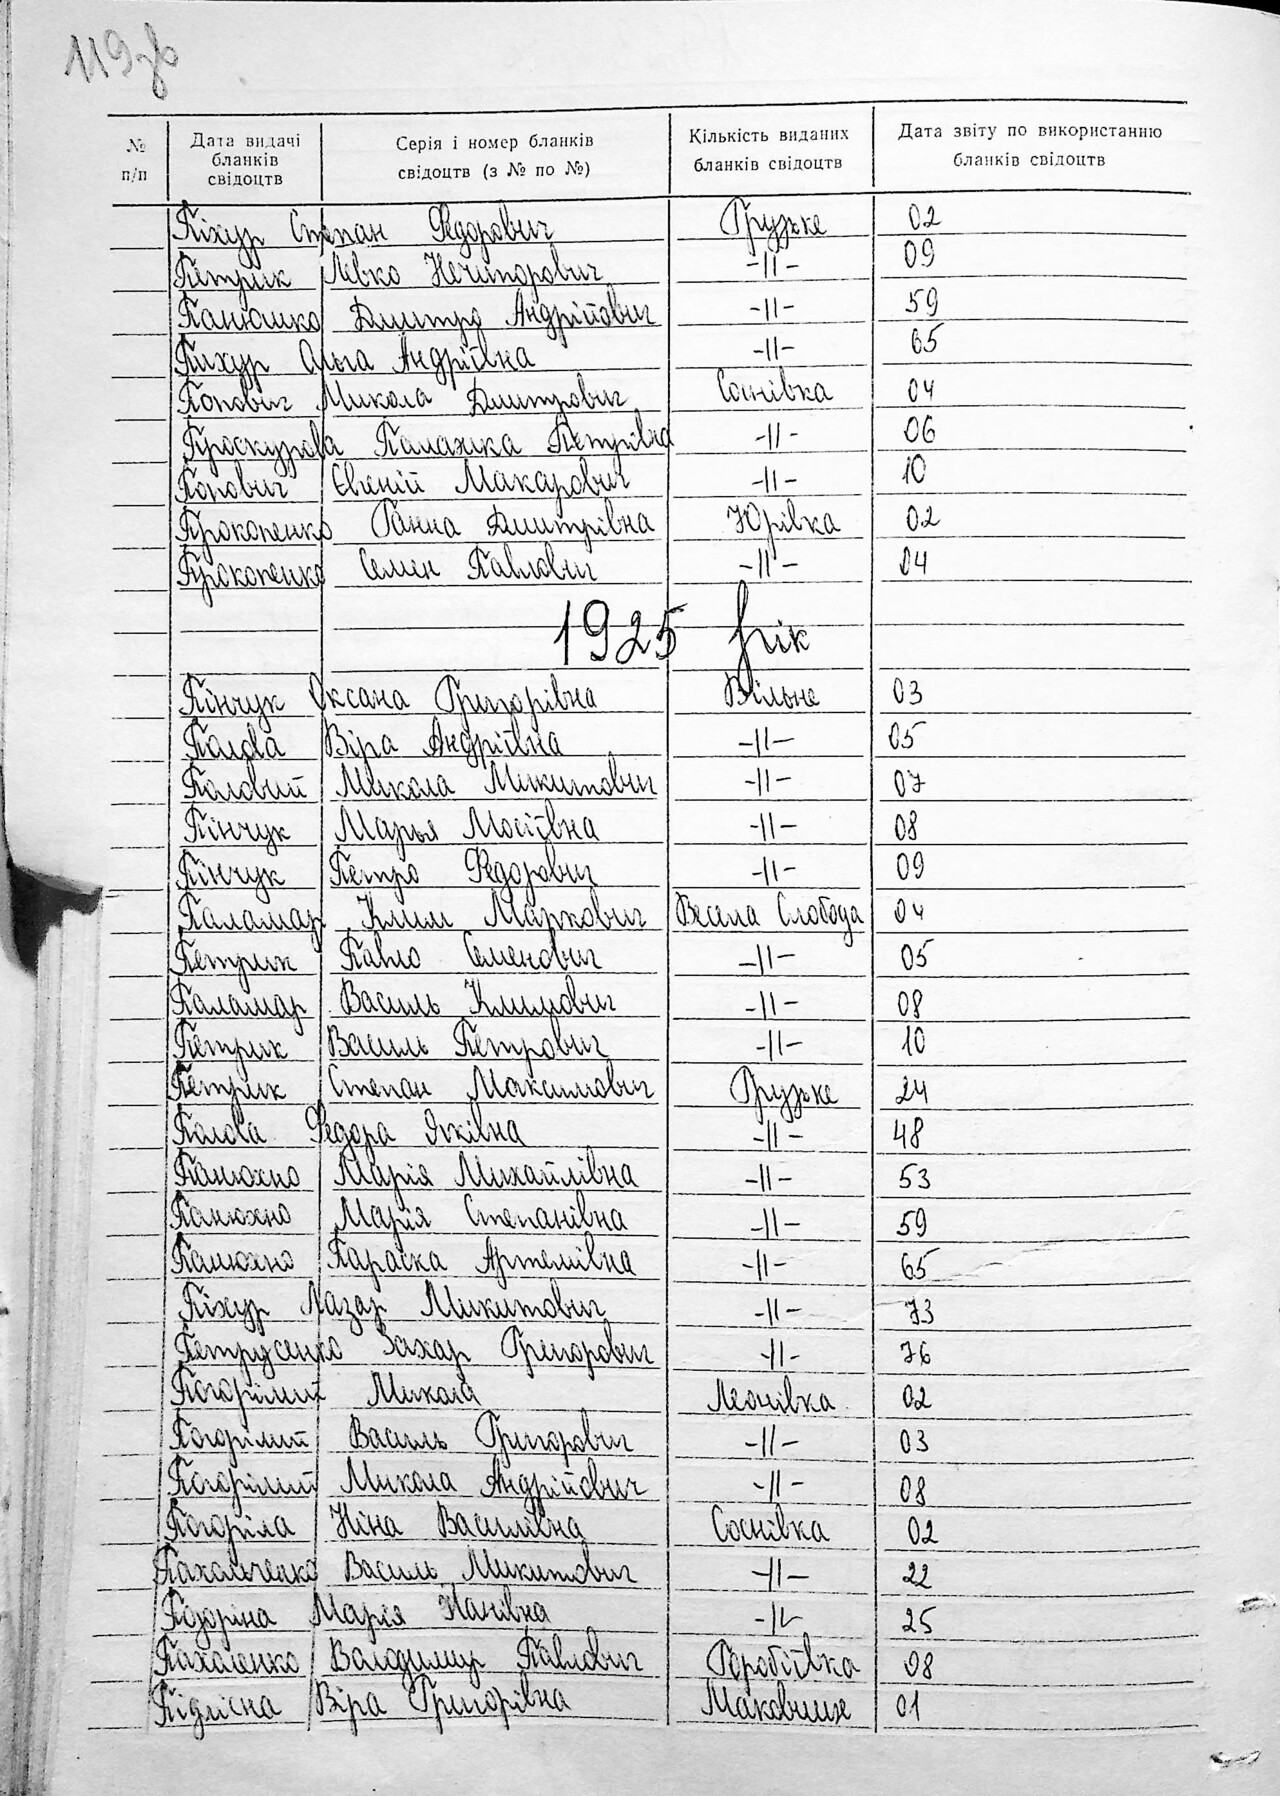 119зв
№ п/п Дата видачі бланків свідоцтв Серія і номер бланків свідоцтв (з № по №) Кількість виданих бланків свідоцтв Дата звіту по використанню бланків свідоцтв
Піхур Степан Федорович Грузьке 02
Петрик Левко Нечипорович -||- 09
Панюшко Дмитро Андрійович -||- 59
Пихур Ольга Андріївна -||- 65
Попович Микола Дмитрович Соснівка 04
Проскурова Палажка Петрівна -||- 06
Попович Євгеній Макарович -||- 10
Прокопенко Ганна Дмитрівна Юрівка 02
Прокопенко Семен Павлович -||- 04
1925 рік
Пінчук Оксана Григорівна Вільне 03
Палова Віра Андріївна -||- 05
Половий Микола Микитович -||- 07
Пінчук Марья Мосіївна -||- 08
Пінчук Петро Федорович -||- 09
Паламар Клим Маркович Весела Слобода 04
Петрик Павло Семенович -||- 05
Паламар Василь Климович -||- 08
Петрик Василь Петрович -||- 10
Петрик Степан Максимович Грузьке 24
Палова Федора Яківна -||- 48
Панюхно Марія Михайлівна -||- 53
Панюхно Марія Степанівна -||- 59
Панюхно Параска Артемівна -||- 65
Піхур Лазар Микитович -||- 73
Петрусенко Захар Григорович -||- 76
Погорілий Микола Леонівка 02
Погорілий Василь Григорович -||- 03
Погорілий Микола Андрійович -||- 08
Погоріла Ніна Василівна Соснівка 02
Пахальченко Василь Микитович -||- 22
Марія Іванівна -||- 25
Пахаленко Володимир Павлович 08
Підлісна Віра Григорівна Маковище 01